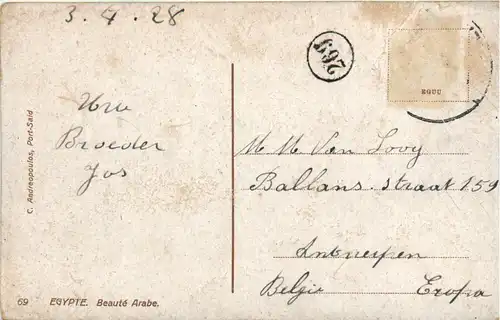 3. 4. 28
269
EGUU
Uw
Broeder
Jos
C. Andreopoulos, Port-Said
M. M. Van Looy
Ballans. straat 159
Antwerpen
Belgie Eropa
69 EGYPTE. Beauté Arabe.